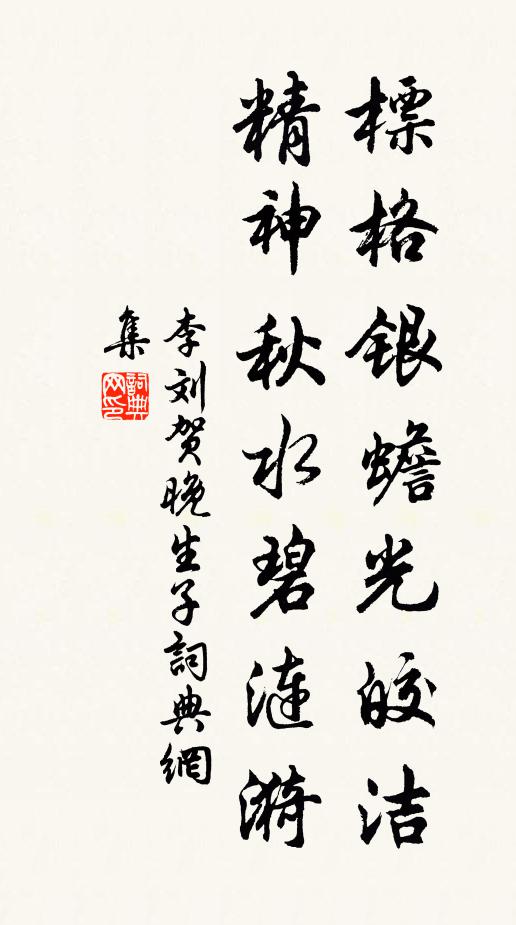 標格银蟾光皎洁
精神秋水碧涟漪
李刘贺晚生子詞典網
集
詞典网印